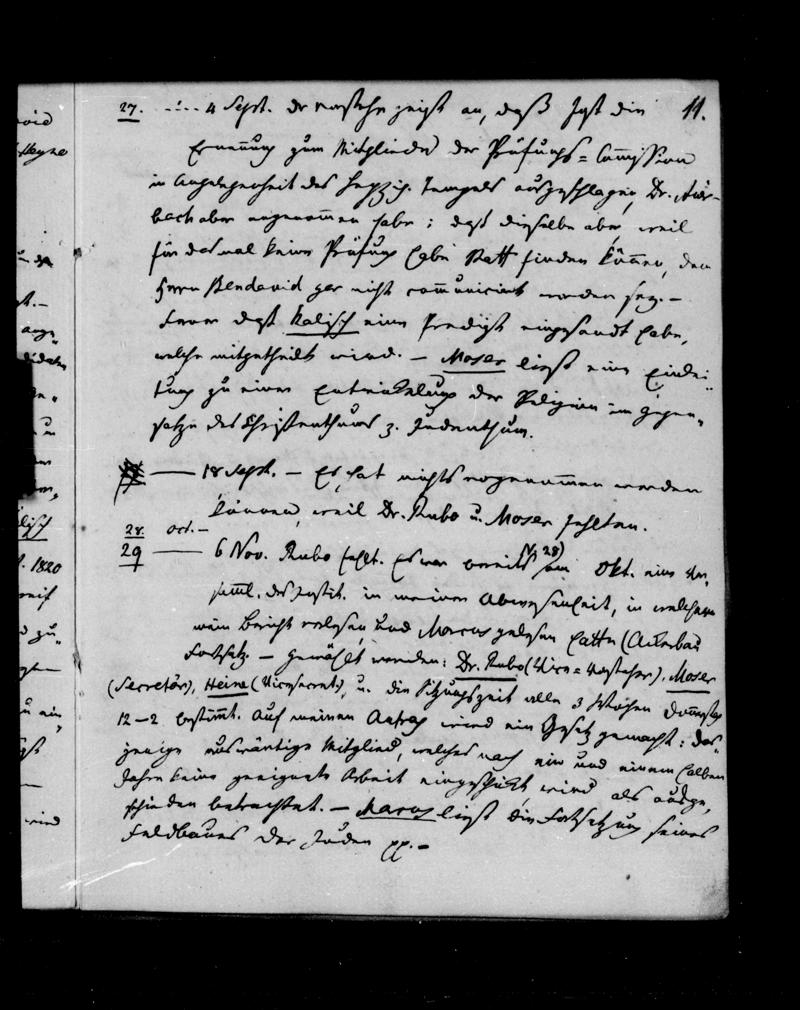 11.
27. — 4 Sept. Der Vorsteher zeigt an, daß Jost die
Ernennung zum Mitgliede der Prüfungs=Com̅ission
in Angelegenheit des Leipzig. Tempels ausgeschlagen, Dr. Auer-
bach aber angenom̅en habe; daß dieselbe aber, weil
für das mal keine Prüfung habe Statt finden kön̅en, dem
Herrn Bendavid gar nicht com̅unicirt worden sey. —
Ferner daß Kalisch eine Predigt eingesandt habe,
welche mitgetheilt wird. — Moser liest eine Einlei-
tung zu einer Entwickelung der Religion im Gegen-
satze des Christenthums z. Judenthum.
— 18 Sept. — Es hat nichts vorgenom̅en werden
können, weil Dr. Rubo u. Moser fehlten.
28. Oct. —
29 — 6 Nov. Rubo fehlt. Es war bereits (V. 28) am Okt. eine Ver-
sam̅l. des Instit. in meiner Abwesenheit, in welcher
mein Bericht verlesen, und Marcus gelesen hatte (Ackerbau
Fortsetz. — Gewählt werden: Dr. Rubo (Vice=Vorsteher), Moser
(Secretär), Heine (Vicesecret), u. die Sitzungszeit alle 3 Wochen Don̅erstag
12—2 bestim̅t. Auf meinen Antrag wird ein Gesetz gemacht: das-
jenige auswärtige Mitglied, welches nach ein und einem halben
Jahre keine geeignete Arbeit eingeschickt, wird als ausge-
schieden betrachtet. — Marcus liest die Fortsetzung seines
Feldbaues der Juden pp. —